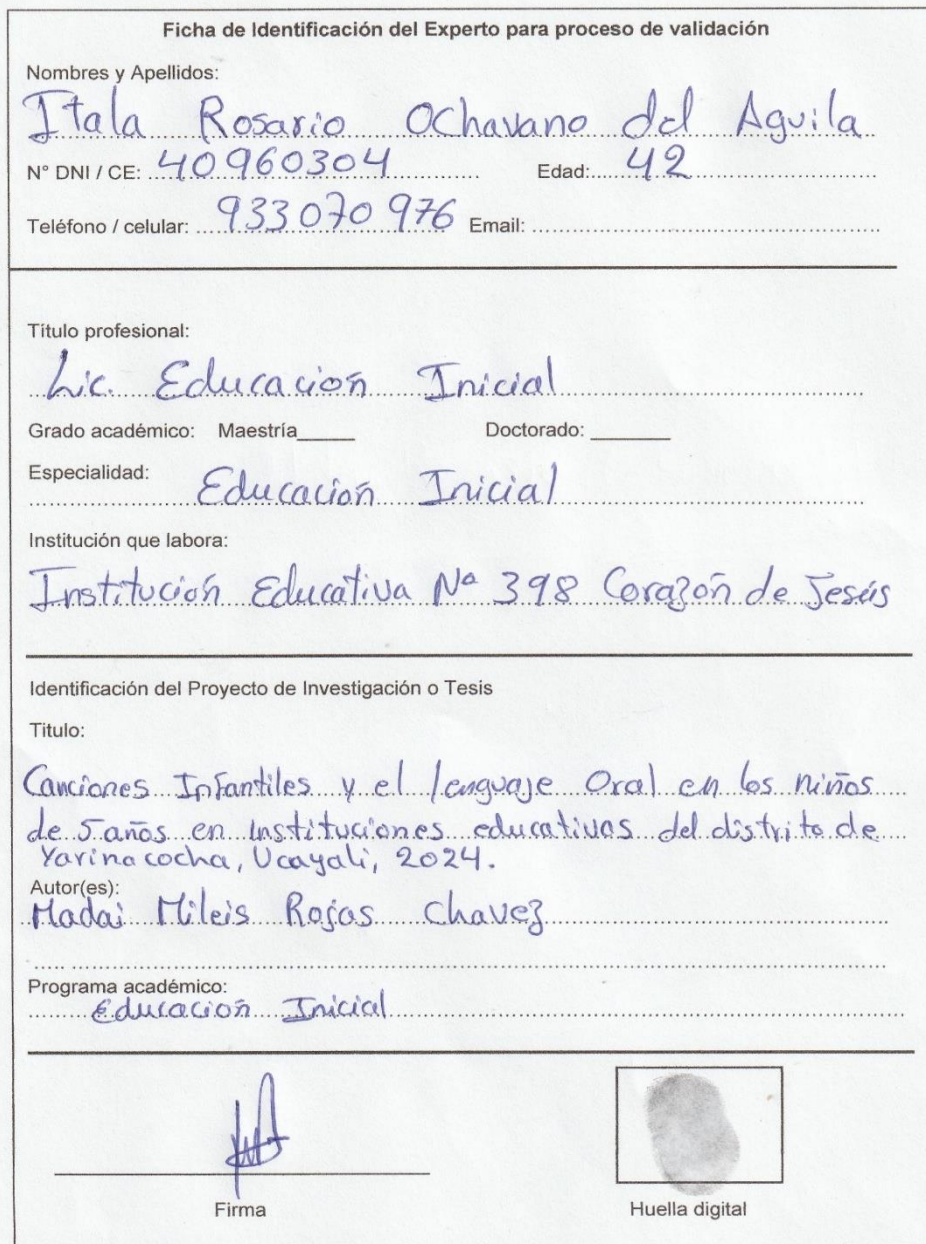 Ficha de Identificación del Experto para proceso de validación
Nombres y Apellidos:
Itala Rosario Ochavano del Aguila
N° DNI / CE: 40960304 Edad: 42
Teléfono / celular: 933070976 Email:
Título profesional:
Lic. Educación Inicial
Grado académico: Maestría_____ Doctorado: _______
Especialidad:
Educación Inicial
Institución que labora:
Institución Educativa Nª 398 Corazón de Jesús
Identificación del Proyecto de Investigación o Tesis
Titulo:
Canciones Infantiles y el lenguaje Oral en los niños
de 5 años en instituciones educativas del distrito de
Yarinacocha, Ucayali, 2024.
Autor(es):
Madai Mileis Rojas Chavez
Programa académico:
Educación Inicial
Firma Huella digital